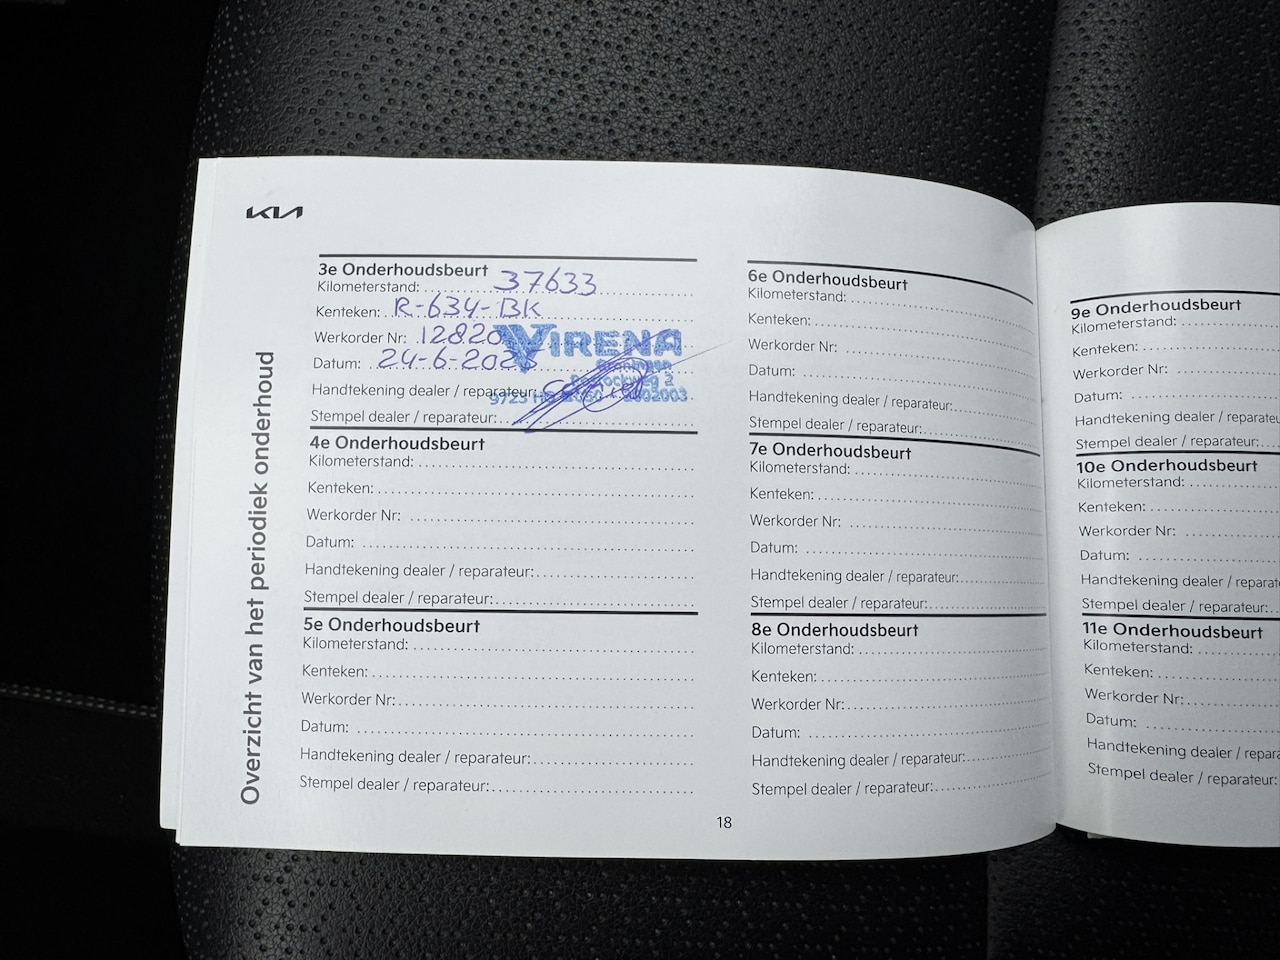 KIA
Overzicht van het periodiek onderhoud
3e Onderhoudsbeurt
Kilometerstand: 37633
Kenteken: R-634-BK
Werkorder Nr: 12820
Datum: 24-6-2025
VIRENA
Groningen
Handtekening dealer / reparateur:
Stempel dealer / reparateur:
4e Onderhoudsbeurt
Kilometerstand:
Kenteken:
Werkorder Nr:
Datum:
Handtekening dealer / reparateur:
Stempel dealer / reparateur:
5e Onderhoudsbeurt
Kilometerstand:
Kenteken:
Werkorder Nr:
Datum:
Handtekening dealer / reparateur:
Stempel dealer / reparateur:
6e Onderhoudsbeurt
Kilometerstand:
Kenteken:
Werkorder Nr:
Datum:
Handtekening dealer / reparateur:
Stempel dealer / reparateur:
7e Onderhoudsbeurt
Kilometerstand:
Kenteken:
Werkorder Nr:
Datum:
Handtekening dealer / reparateur:
Stempel dealer / reparateur:
8e Onderhoudsbeurt
Kilometerstand:
Kenteken:
Werkorder Nr:
Datum:
Handtekening dealer / reparateur:
Stempel dealer / reparateur:
18
9e Onderhoudsbeurt
Kilometerstand:
Kenteken:
Werkorder Nr:
Datum:
Handtekening dealer / reparateu
Stempel dealer / reparateur:
10e Onderhoudsbeurt
Kilometerstand:
Kenteken:
Werkorder Nr:
Datum:
Handtekening dealer / reparat
Stempel dealer / reparateur:
11e Onderhoudsbeurt
Kilometerstand:
Kenteken:
Werkorder Nr:
Datum:
Handtekening dealer / repara
Stempel dealer / reparateur: